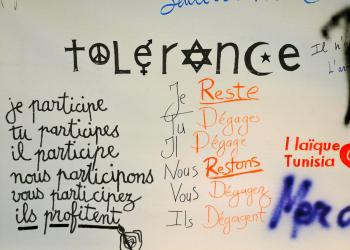 tolerance
Il n'
L'a
je participe
tu participes
il participe
nous participons
vous participez
ils profitent
Je Reste
Tu Dégages
Il Dégage
Nous Restons
Vous Dégagez
Ils Dégagent
I laïque
Tunisia
Merc